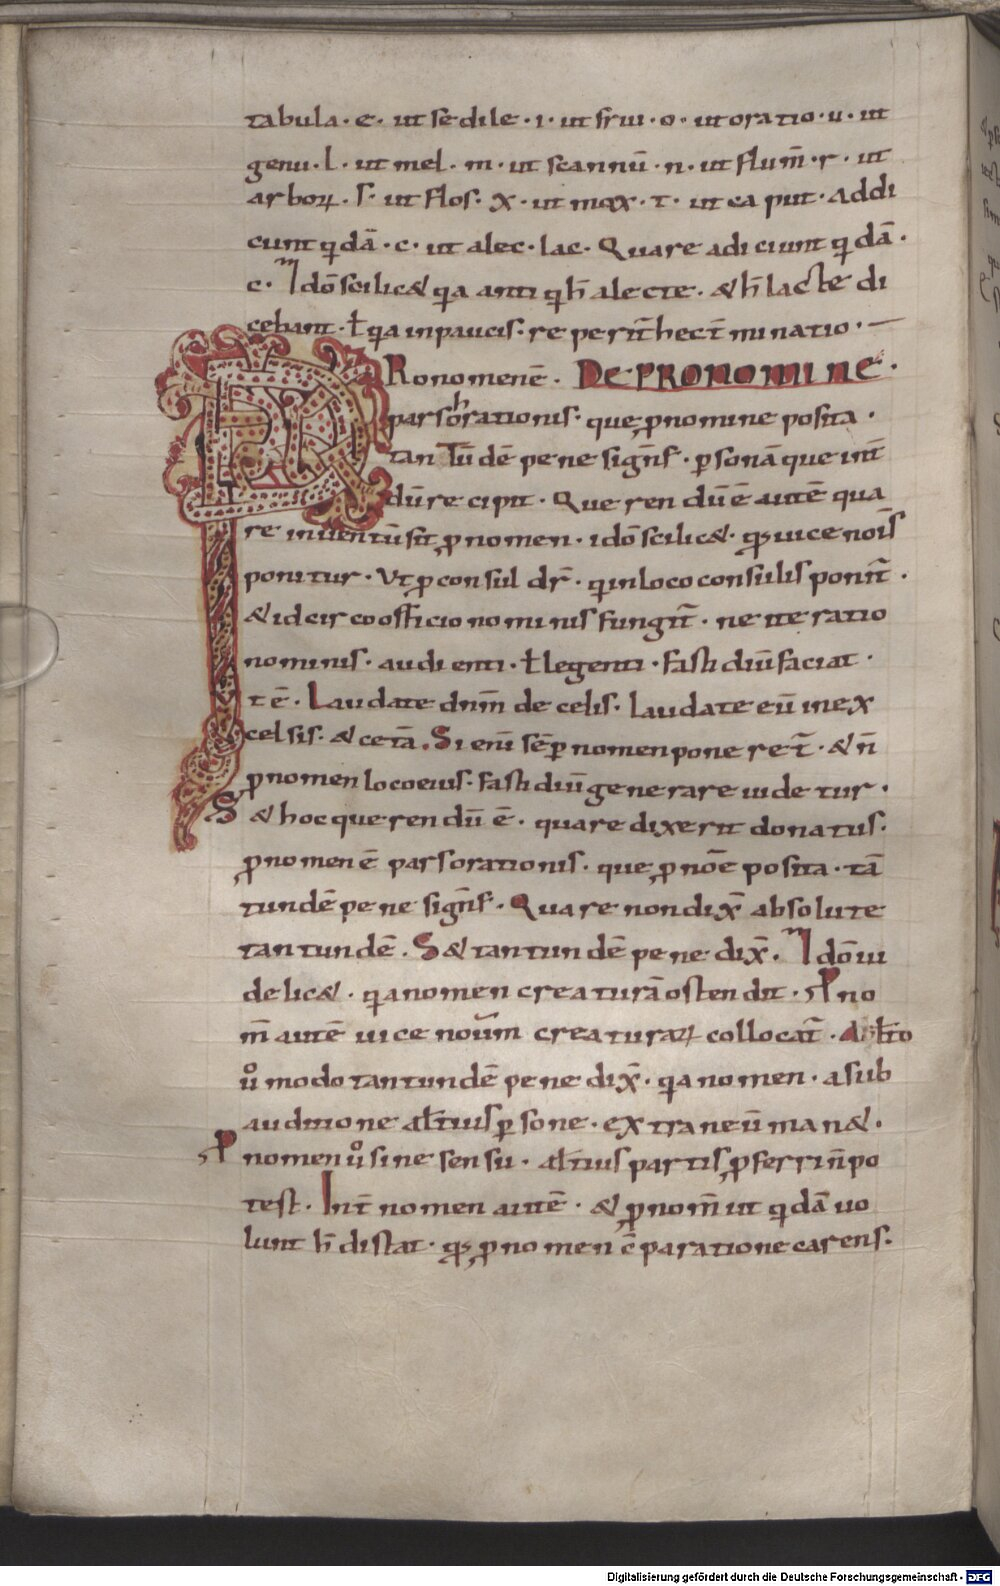 tabula · e · ut sedile · i · ut frui · o · ut oratio · u · ut
genu · l · ut mel · m · ut scannū · n · ut flum̄ · r · ut
arborꝝ · s · ut flos · x · ut max · t · ut caput · Addi
cunt qdā · c · ut alec · lac · Quare adiciunt qdā ·
c · Idō scilic& qa anti qh̄ alecte · & h̄ lacte di
cebant · ł qa inpaucis · reperit̄ hec t̄minatio ·
Ronomen ē · DE PRONOMINE ·
pars horationis · que ꝓnomine posita ·
tantūdē pene signf̄ · psonāque int̄
dū recipit · Querendū ē autē qua
re inuentū sit ꝓnomen · idō scilic& · qꝫ uice nois̄
ponitur · Vt ꝓconsul dr̄ · qin loco consulis ponit̄ ·
& idcirco officio nominis fungit̄ · ne iteratio
nominis · audienti · ł legenti · fastidiū faciat ·
t ē · Laudate dnm̄ de celis · laudate eū inex
celsis · & cetā · Si eni sēp nomen poneret̄ · & n̄
ꝓnomen loco eius · fastidiū generare uidetur ·
S& hoc querendū ē · quare dixerit donatus ·
ꝓnomen ē pars orationis · que ꝓ nōe posita · tā
tundē pene signf̄ · Quare non dix̄ absolute
tantundē · S& tantundē pene dix̄ · Idō ui
delic& · qa nomen creaturā ostendit · Pno
m̄ autē uice noum creaturaꝝ collocat̄ ·
uº modo tantundē pene dix̄ · qa nomen · a sub
auditione alt̄ius psone · extraneū man& ·
Pnomen uº sine sensu · alt̄ius partis ꝓferri n̄ po
test · Int̄ nomen autē · & ꝓnom̄ ut qdā uo
lunt h̄ distat · qꝫ ꝓnomen c̄paratione carens ·
Digitalisierung gefördert durch die Deutsche Forschungsgemeinschaft · DFG